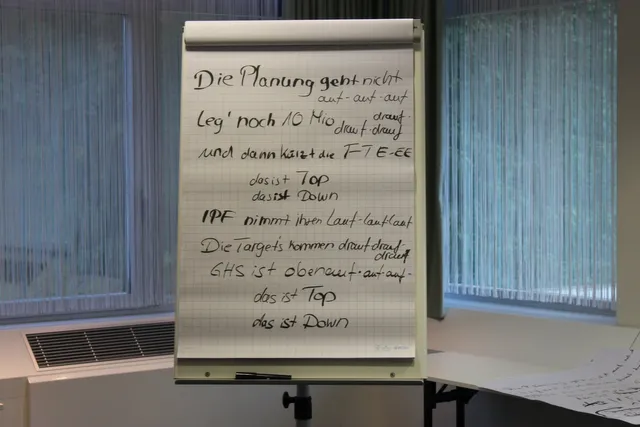 Die Planung geht nicht
auf-auf-auf
Leg' noch 10 Mio drauf-
drauf-drauf
und dann kürzt die FTE-EE
das ist Top
das ist Down
IPF nimmt ihren Lauf-lauf lauf
Die Targets kommen drauf-drauf-
drauf
GHS ist obenauf-auf-auf-
das ist Top
das ist Down